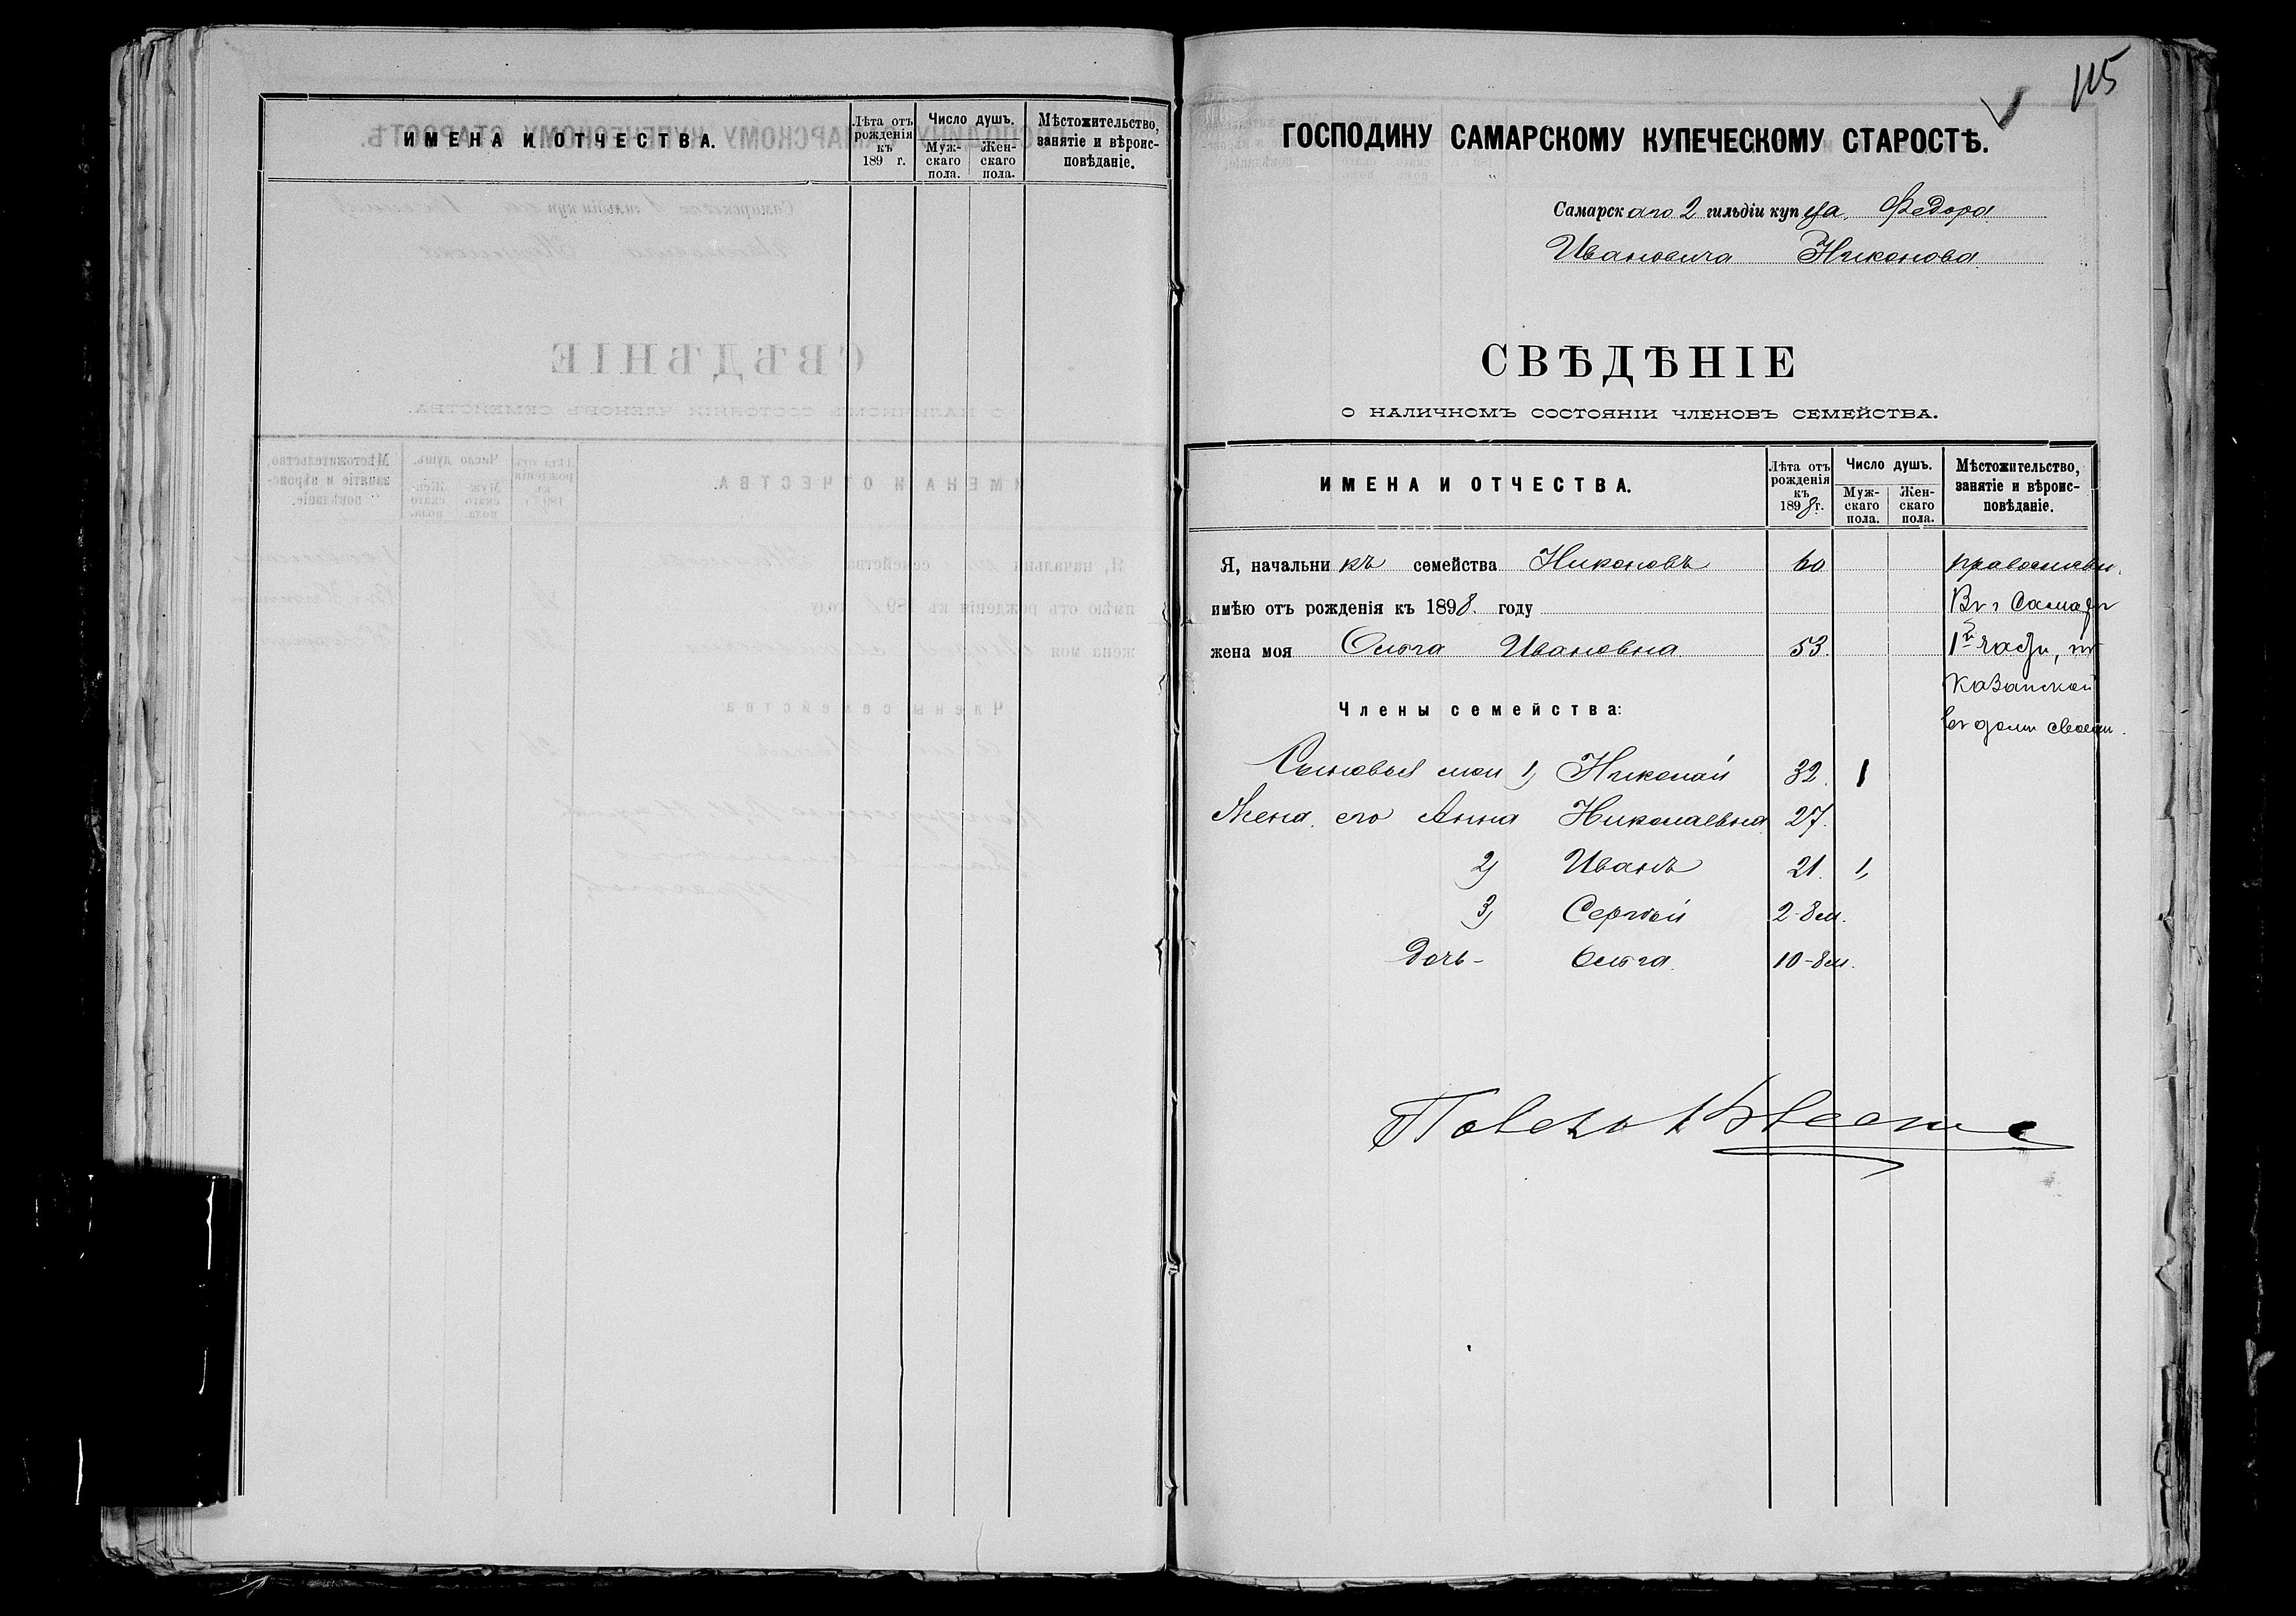 ИМЕНА И ОТЧЕСТВА.
Лѣта отъ рожденія къ 189 г.
Число душъ.
Мужскаго пола.
Женскаго пола.
Мѣстожительство, занятіе и вѣроисповѣданіе.
115
ГОСПОДИНУ САМАРСКОМУ КУПЕЧЕСКОМУ СТАРОСТѢ.
Самарскаго 2 гильдіи купца Федора
Ивановича Никонова
СВѢДѢНІЕ
О НАЛИЧНОМЪ СОСТОЯНІИ ЧЛЕНОВЪ СЕМЕЙСТВА.
ИМЕНА И ОТЧЕСТВА.
Лѣта отъ рожденія къ 1898 г.
Число душъ.
Мужскаго пола.
Женскаго пола.
Мѣстожительство, занятіе и вѣроисповѣданіе.
Я, начальникъ семейства Никоновъ 60 православн.
имѣю отъ рожденія къ 1898. году Въ г Самарѣ
жена моя Ольга Ивановна 53. 1й части, по
Казанской
Члены семейства:
въ домѣ своемъ.
Сыновья мои 1) Николай 32. 1
Жена его Анна Николаевна 27.
2) Иванъ 21. 1,
3) Сергѣй 2-8 м.
Дочь - Ольга. 10-8 м.